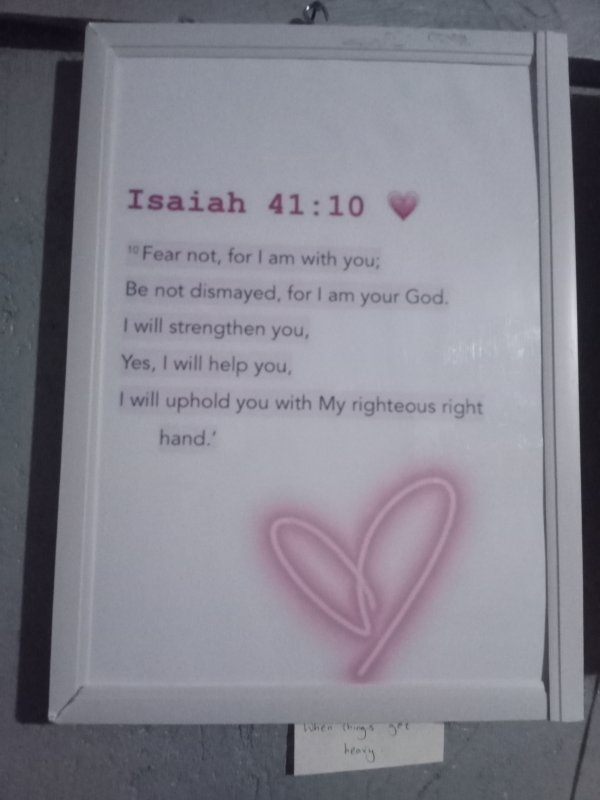 Isaiah 41:10 💗
10 Fear not, for I am with you;
Be not dismayed, for I am your God.
I will strengthen you,
Yes, I will help you,
I will uphold you with My righteous right
hand.’
When things get
heavy